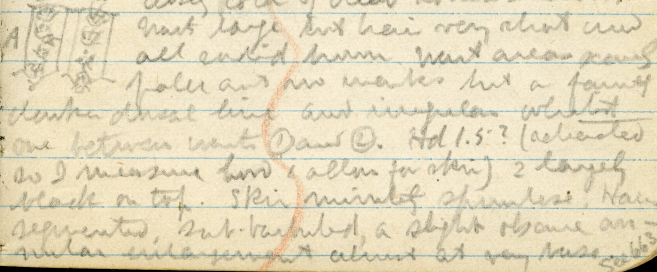 A
wart large but hair very short and
all sordid brown wart areas
paler and no marks but a faint
darker dorsal line and irregular whitish
one between warts ① and ②. Hd 1.5? (retracted
so I measure hard (allow for skin) 2 largely
black on top. Skin minutely spinulose. Hair
segmented, sub-barbuled, a slight obscure an-
nular enlargement almost at very base.
See 663